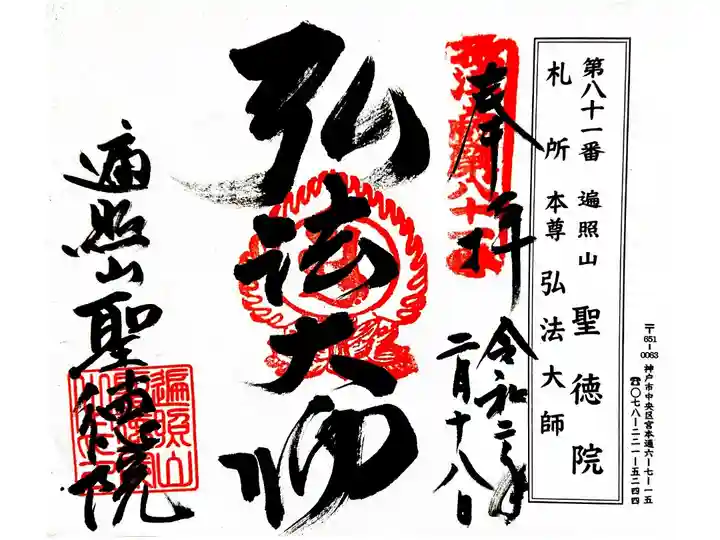 〒651-0063 神戸市中央区宮本通六-七-一五
☎〇七八-二二一-五二四四
第八十一番 遍照山 聖徳院
札所本尊 弘法大師
奉拝
令和二年
二月十八日
弘法大師
遍照山聖徳院
遍照山